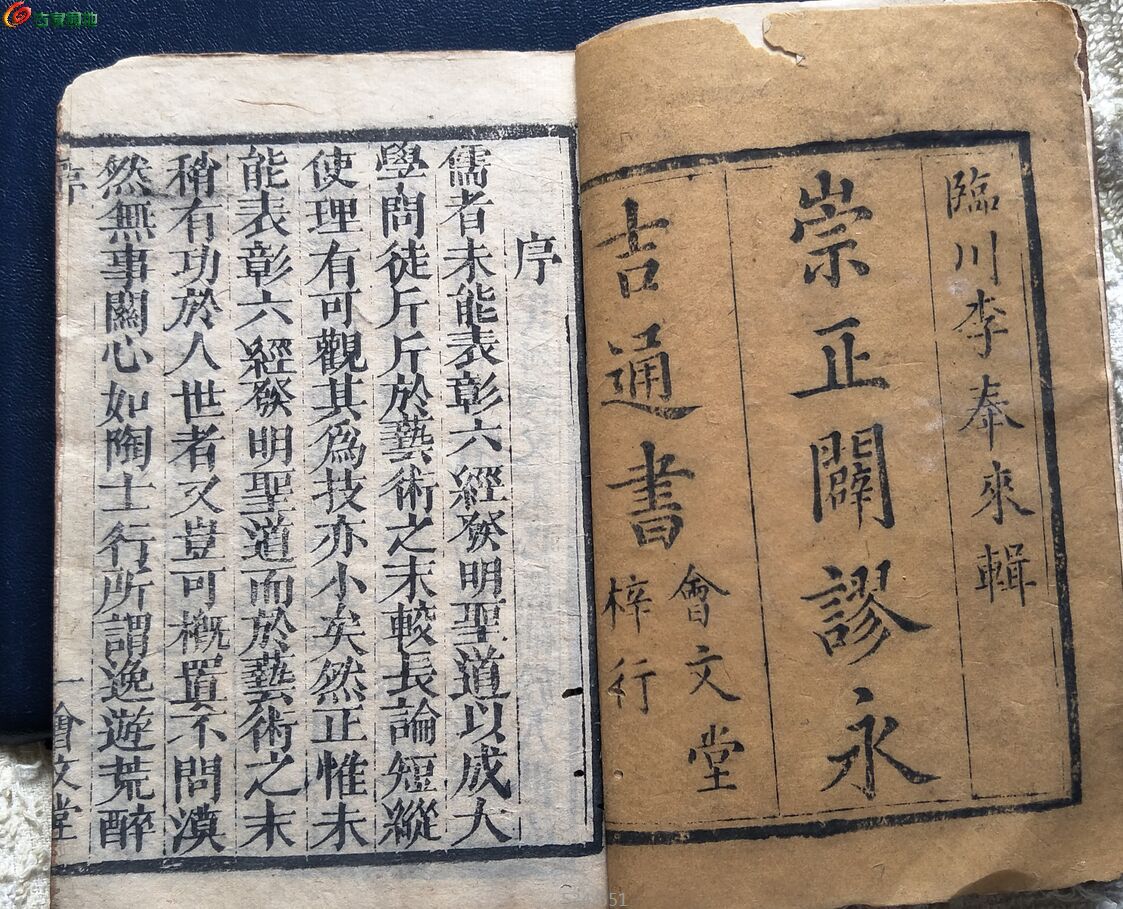 臨川李奉來輯
崇正闢謬永
吉通書
會文堂
梓行
序
儒者未能表彰六經發明聖道以成大
學問徒斤斤於藝術之末較長論短縱
使理有可觀其為技亦小矣然正惟未
能表彰六經發明聖道而於藝術之末
稍有功於人世者又豈可概置不問漠
然無事關心如陶士行所謂逸遊荒醉
序
一
會文堂